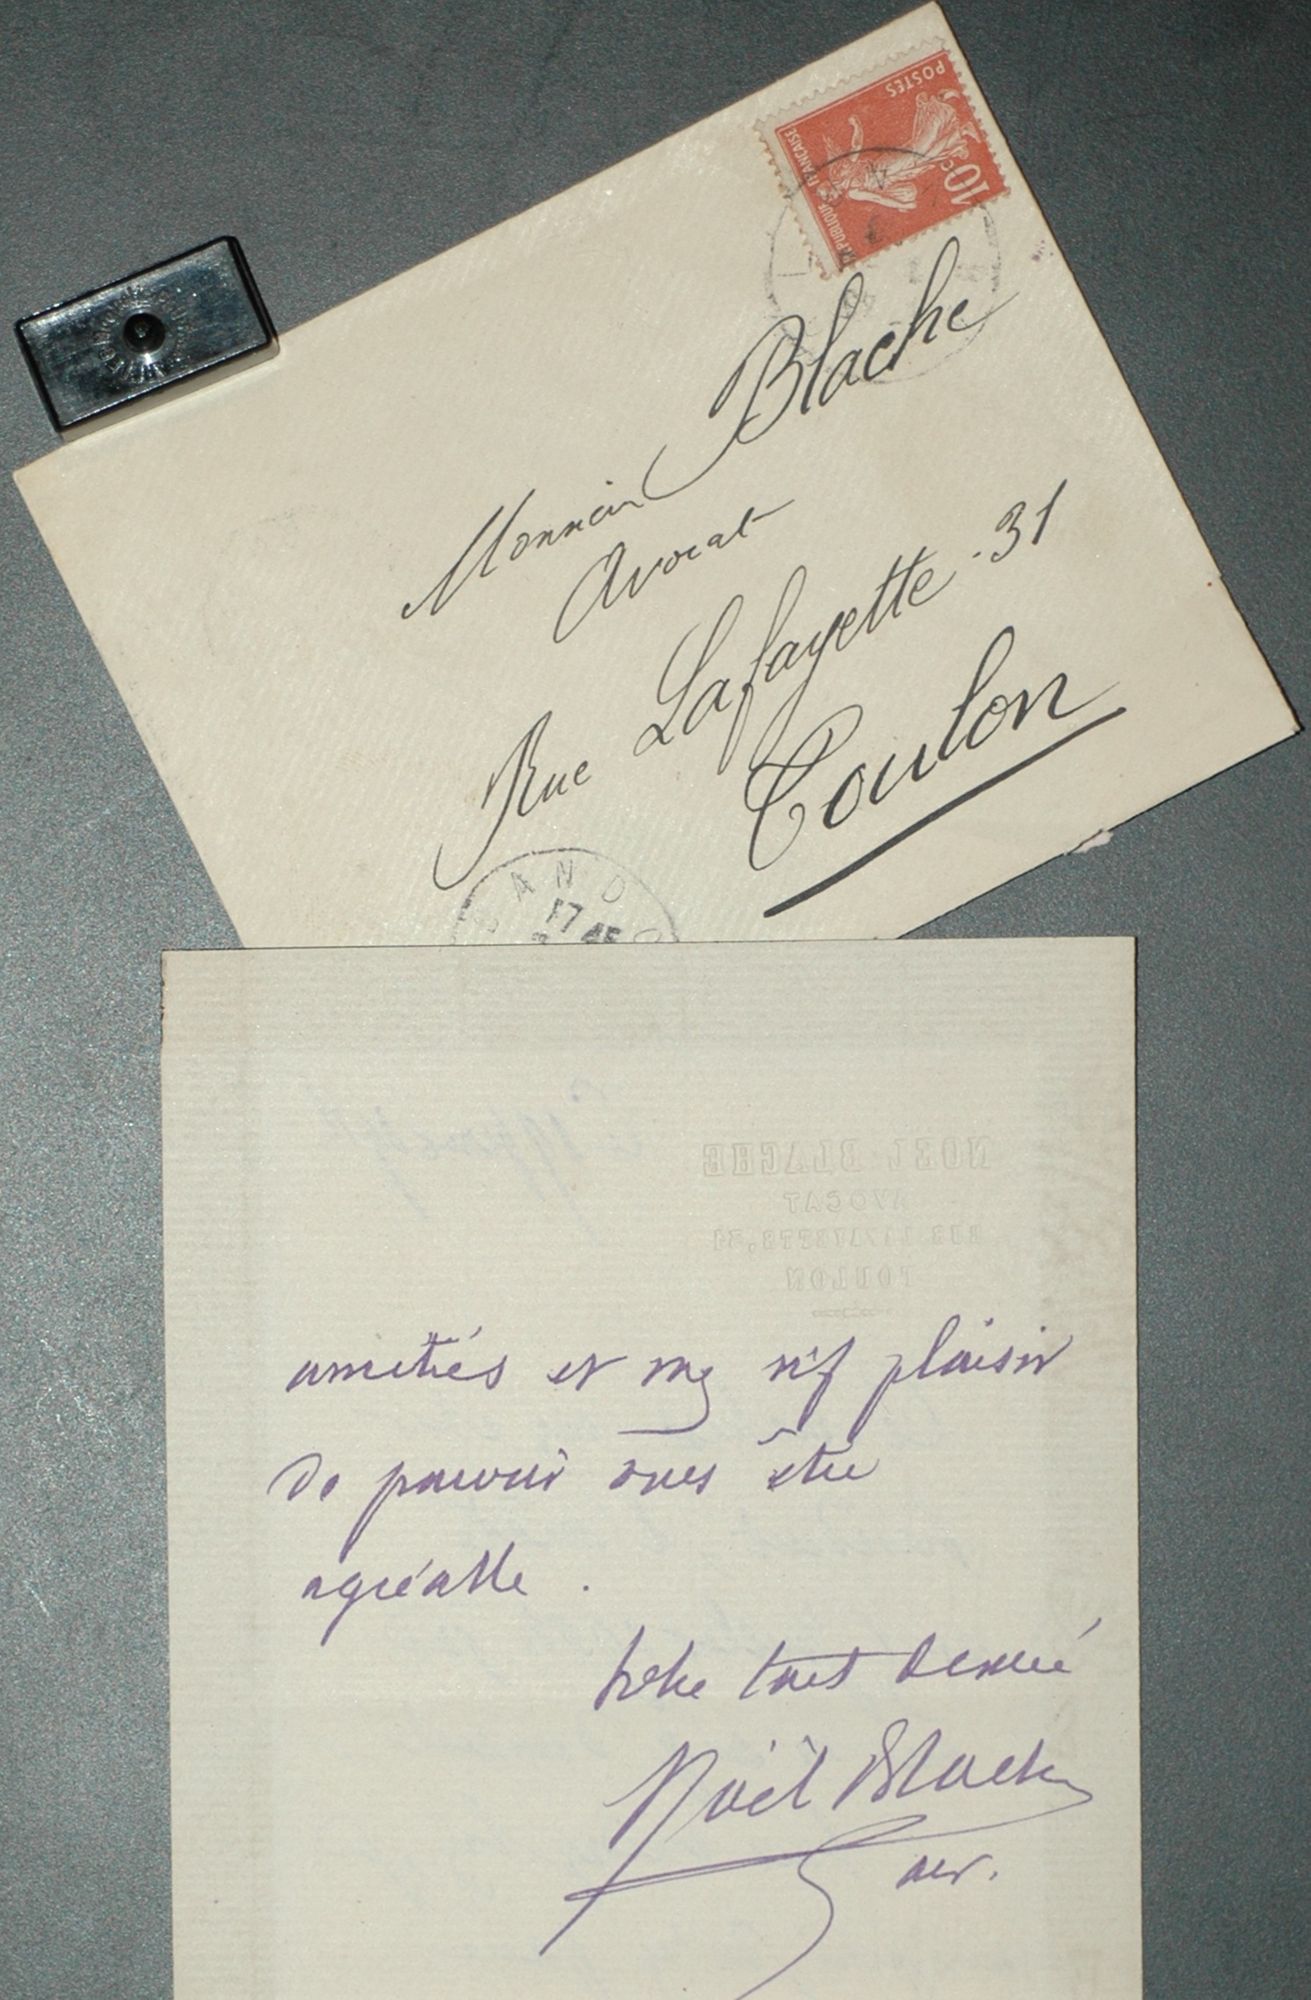 POSTES
10c
REPUBLIQUE FRANCAISE
Monsieur Blache
Avocat
Rue Lafayette . 31
Toulon
SAND
17 45
NOEL BLACHE
AVOCAT
RUE LAFAYETTE, 31
TOULON
amitiés et plaisir
de pouvoir vous être
agréable .
Votre tout dévoué
Noël Blache
av.